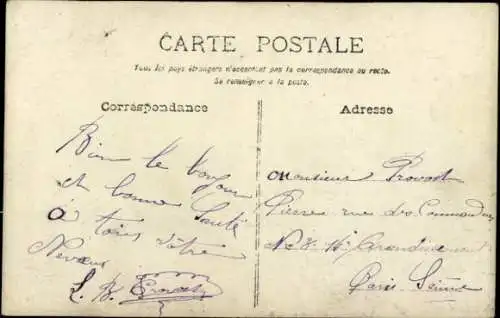 CARTE POSTALE
Tous les pays étrangers n'acceptent pas la correspondance au recto.
Se renseigner à la poste.
Correspondance
Adresse
Bien le bonjour
et bonne Santé
à tous votre
Neveu
L. B. Provost
Monsieur Provost
Pierre rue des Commandeur
No 8 14e Arrondissement
Paris Seine